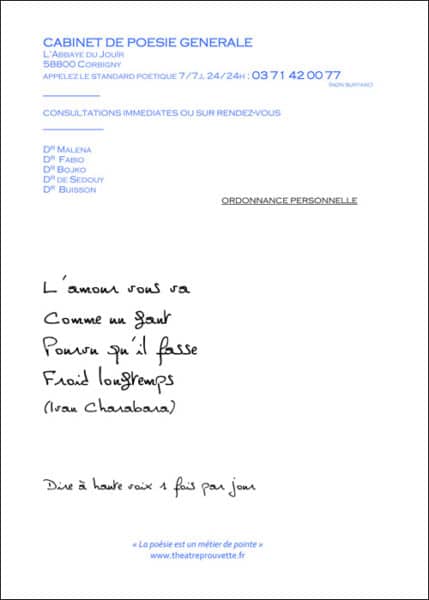 CABINET DE POESIE GENERALE
L'ABBAYE DU JOUÏR
58800 CORBIGNY
APPELEZ LE STANDARD POETIQUE 7/7J, 24/24H : 03 71 42 00 77
(NON SURTAXE)
CONSULTATIONS IMMEDIATES OU SUR RENDEZ-VOUS
DR MALENA
DR FABIO
DR BOJKO
DR DE SEDOUY
DR BUISSON
ORDONNANCE PERSONNELLE
L'amour vous va
Comme un gant
Pourvu qu'il fasse
Froid longtemps
(Ivan Charabara)
Dire à haute voix 1 fois par jour
« La poésie est un métier de pointe »
www.theatreprouvette.fr